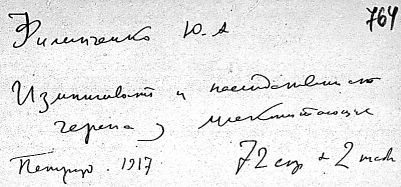 764
Филипченко Ю.А
Изменчивость и наследственность
черепа у млекопитающих
Петрогр. 1917 72 стр + 2 табл